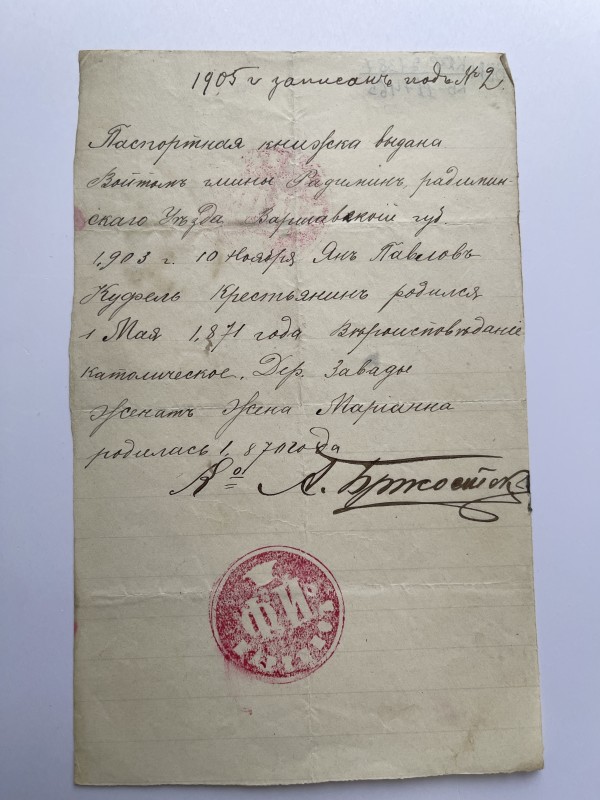 1905 г записанъ подъ № 2.
Паспортная книжка выдана
Войтомъ гмины Радиминъ, радимин-
скаго Уѣзда Варшавской губ.
1,903 г. 10 Ноября Янъ Павловъ
Куфель Крестьянинъ родился
1 Мая 1,871 года Вѣроисповѣданіе
католическое. Дер. Завады
Женатъ Жена Маріанна
родилась 1,870 года
А. Бржостек
Ф И